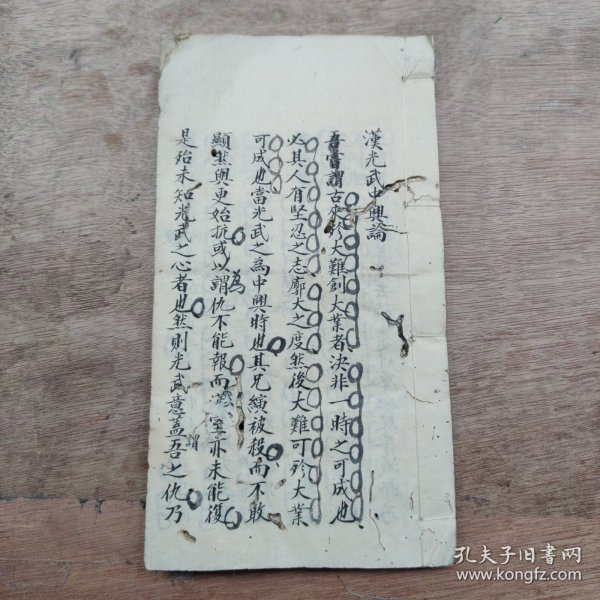 漢光武中興論
吾嘗謂古來殄大難創大業者決非一時之可成也
必其人有堅忍之志廓大之度然後大難可殄大業
可成也當光武之為中興時也其兄縯被殺而不敢
顯然與更始抗或以為謂仇不能報而漢室亦未能復
是殆未知光武之心者也然則光武意蓋謂吾之仇乃
孔夫子旧书网
www.kongfz.com